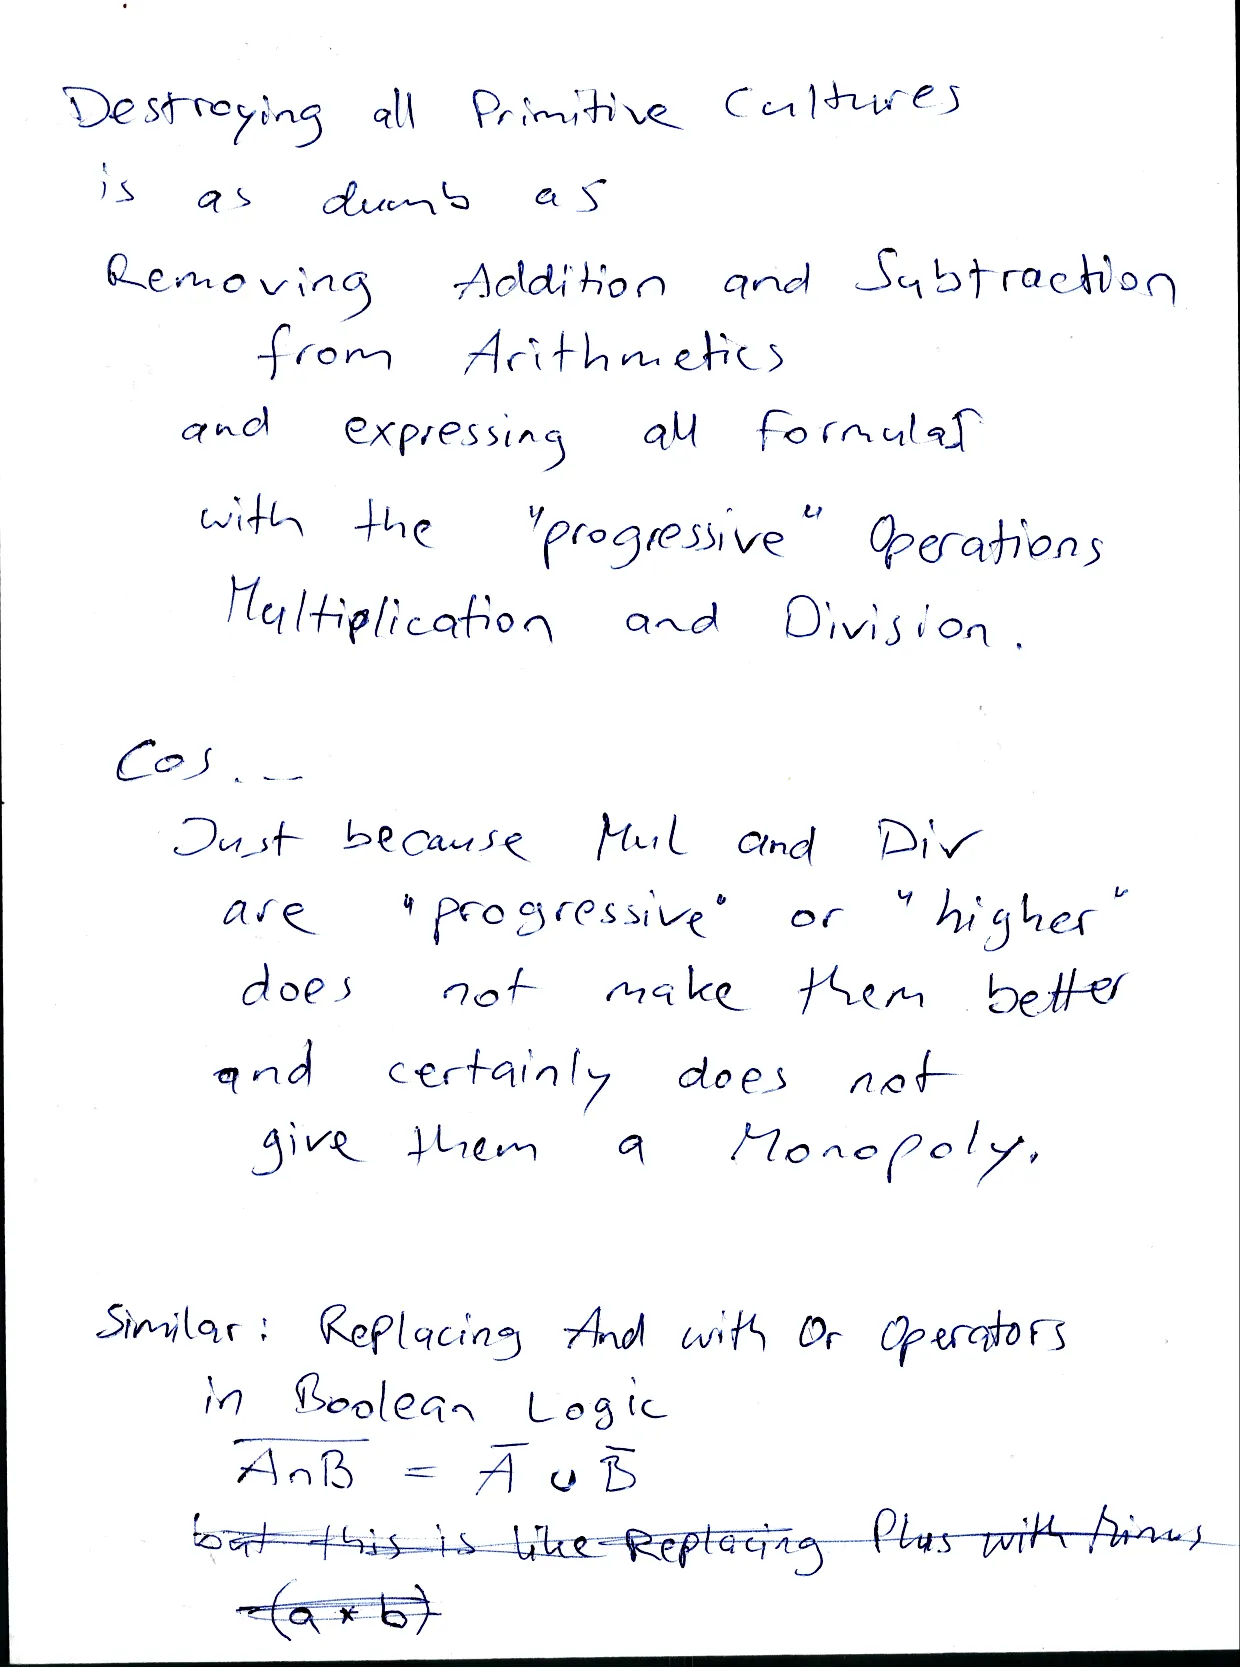 Destroying all Primitive Cultures
is as dumb as
Removing Addition and Subtraction
from Arithmetics
and expressing all Formulas
with the "progressive" Operations
Multiplication and Division.
Cos...
Just because Mul and Div
are "progressive" or "higher"
does not make them better
and certainly does not
give them a Monopoly.
Similar: Replacing And with Or Operators
in Boolean Logic
A̅∩̅B̅ = A̅ ∪ B̅
but this is like Replacing Plus with Minus
-(a * b)